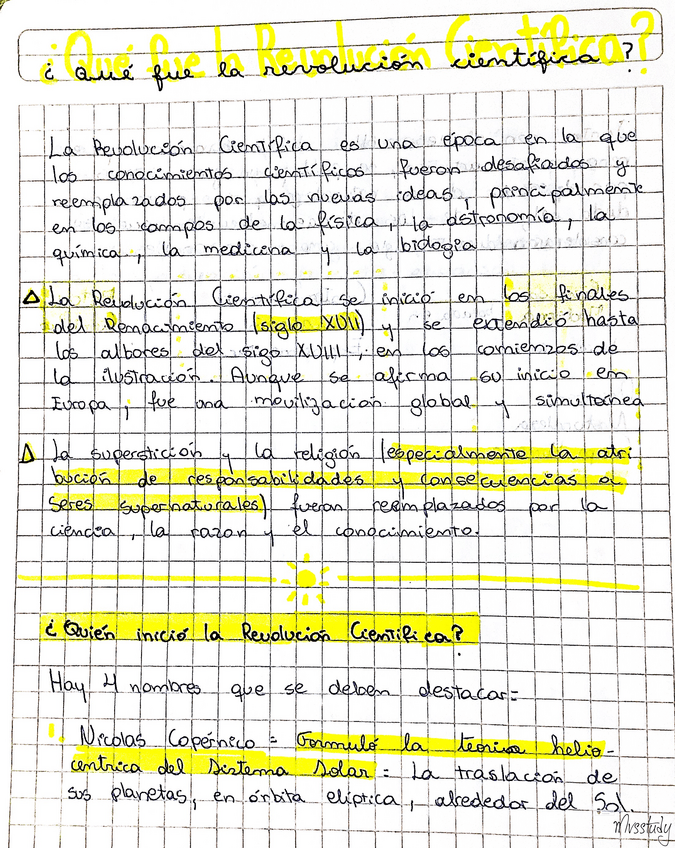 ¿Qué fue la Revolución Científica?
¿ Qué fue la revolución científica ?
La Revolución Científica es una época en la que
los conocimientos científicos fueron desafiados y
reemplazados por las nuevas ideas, principalmente
en los campos de la física, la astronomía, la
química, la medicina y la biología
La Revolución Científica se inició en los finales
del Renacimiento (siglo XVII) y se extendió hasta
los albores del sigo XVIII, en los comienzos de
la ilustración. Aunque se afirma su inicio en
Europa, fue una movilización global y simultanea
La superstición y la religión (especialmente la atri
bución de responsabilidades y consecuencias a
seres supernaturales) fueron reemplazados por la
ciencia, la razon y el conocimiento.
¿Quién inició la Revolución Científica?
Hay 4 nombres que se deben destacar=
1. Nicolas Copérnico = Formuló la teoria helio-
centrica del Sistema Solar = La traslación de
sus planetas, en órbita elíptica, alrededor del Sol.
mvsstudy